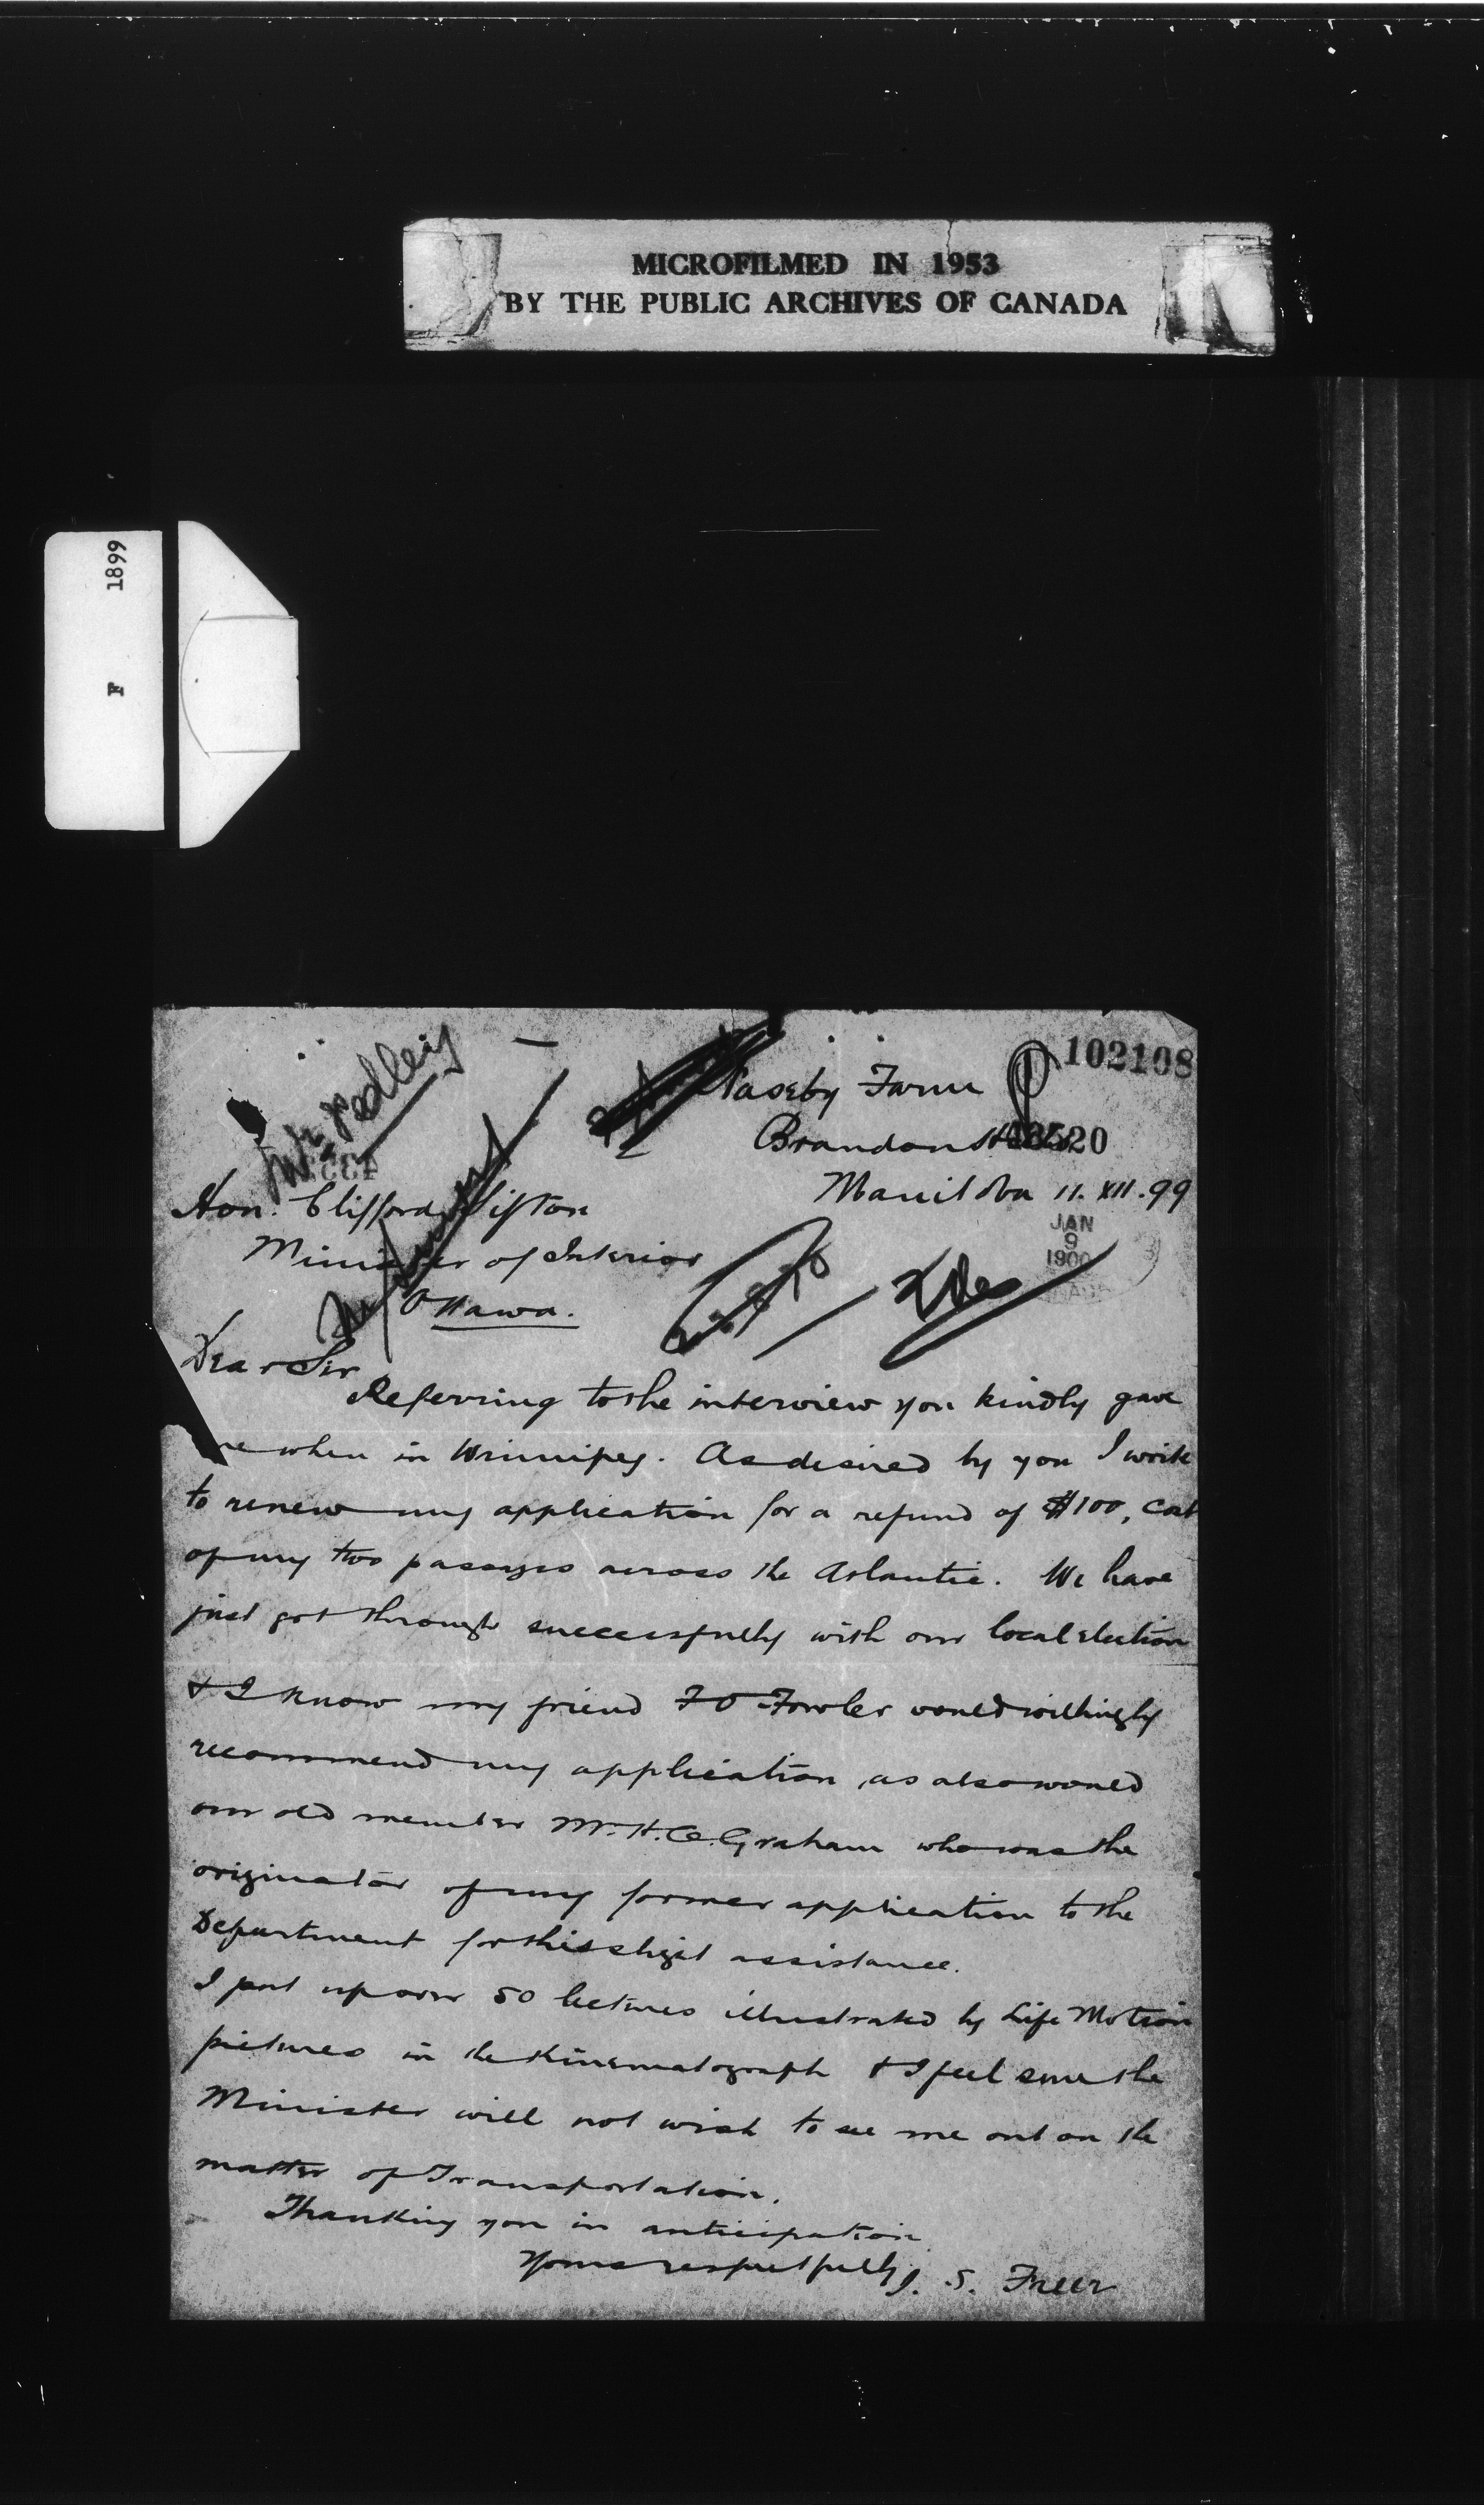 MICROFILMED IN 1953
BY THE PUBLIC ARCHIVES OF CANADA
F 1899
102108
Mr Pedley
Naseby Farm
Brandon Hills
Manitoba 11. XII. 99
JAN
9
1900
Hon. Clifford Sifton
Minister of Interior
Ottawa.
Dear Sir
Referring to the interview you kindly gave
me when in Winnipeg. As desired by you I write
to renew my application for a refund of $100, cost
of my two passages across the Atlantic. We have
just got through successfully with our local election
& I know my friend F O Fowler would willingly
recommend my application, as also would
our old member Mr. H. C. Graham who was the
originator of my former application to the
Department for this slight assistance.
I put up over 50 lectures illustrated by Life Motion
pictures in the Kinematograph & I feel sure the
Minister will not wish to see me out on the
matter of Transportation.
Thanking you in anticipation
Yours respectfully J. S. Freer